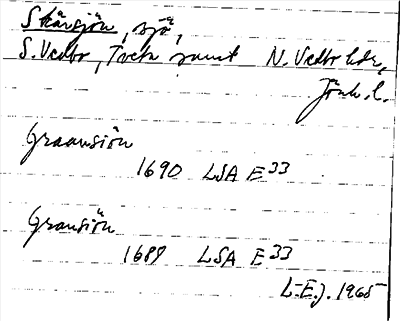 Skärsjön, sjö,
S. Vedbo, Tveta samt N. Vedbo hdr,
Jönk. l.
Graansiön
1690 LSA E33
Gransiön
1689 LSA E33
L-E.J. 1965